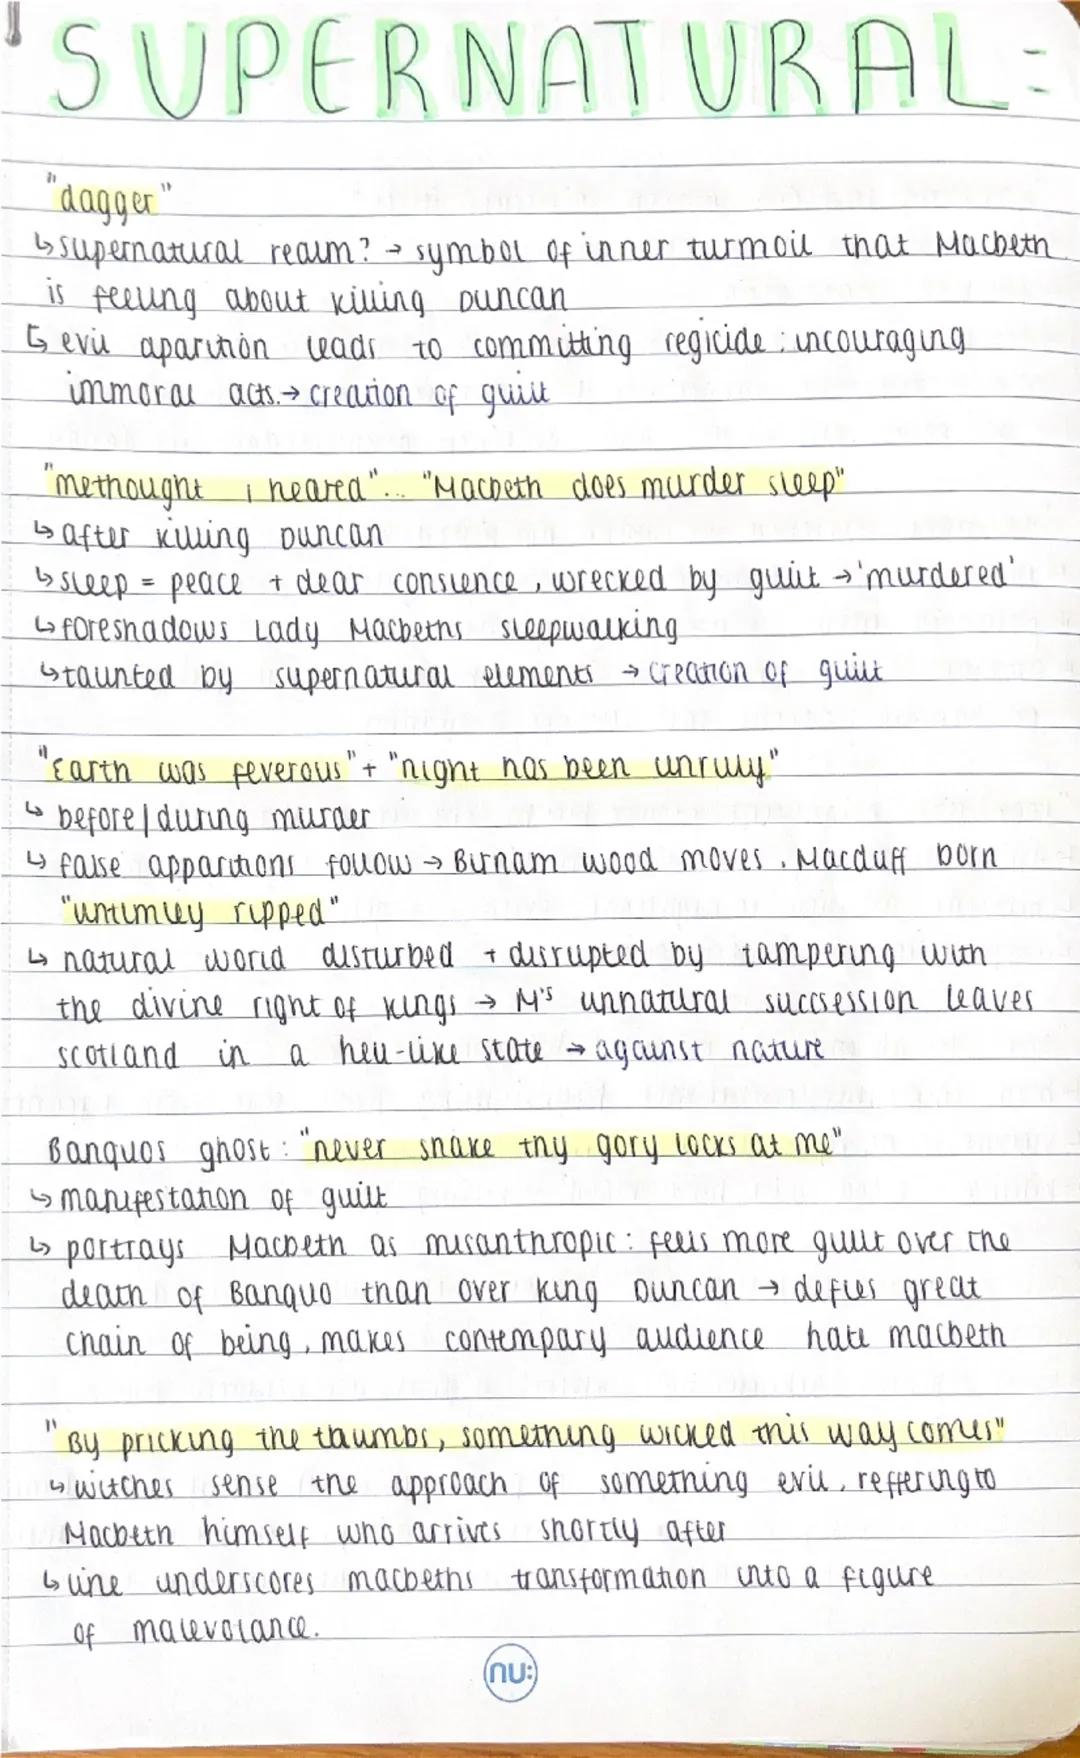 SUPERNATURAL:
"dagger"
↳ supernatural realm? → symbol of inner turmoil that Macbeth
is feeling about killing Duncan
↳ evil aparition leads to committing regicide : incouraging
immoral acts. → creation of guilt
"methought i heared"... "Macbeth does murder sleep"
↳ after killing Duncan
↳ sleep = peace + clear consience, wrecked by guilt → 'murdered'
↳ foreshadows Lady Macbeths sleepwalking
↳ taunted by supernatural elements → creation of guilt
"Earth was feverous" + "night has been unruly"
↳ before/during murder
↳ false apparitions follow → Birnam wood moves. Macduff born
"untimley ripped"
↳ natural world disturbed + disrupted by tampering with
the divine right of kings → M's unnatural succsession leaves
scotland in a hell-like state → against nature
Banquos ghost : "never shake thy gory locks at me"
↳ manifestation of guilt
↳ portrays Macbeth as misanthropic : feels more guilt over the
death of Banquo than over king Duncan → defies great
chain of being, makes contempary audience hate macbeth
"By pricking the thumbs, something wicked this way comes"
↳ witches sense the approach of something evil, reffering to
Macbeth himself who arrives shortly after
↳ line underscores macbeths transformation into a figure
of malevolance.
nu: